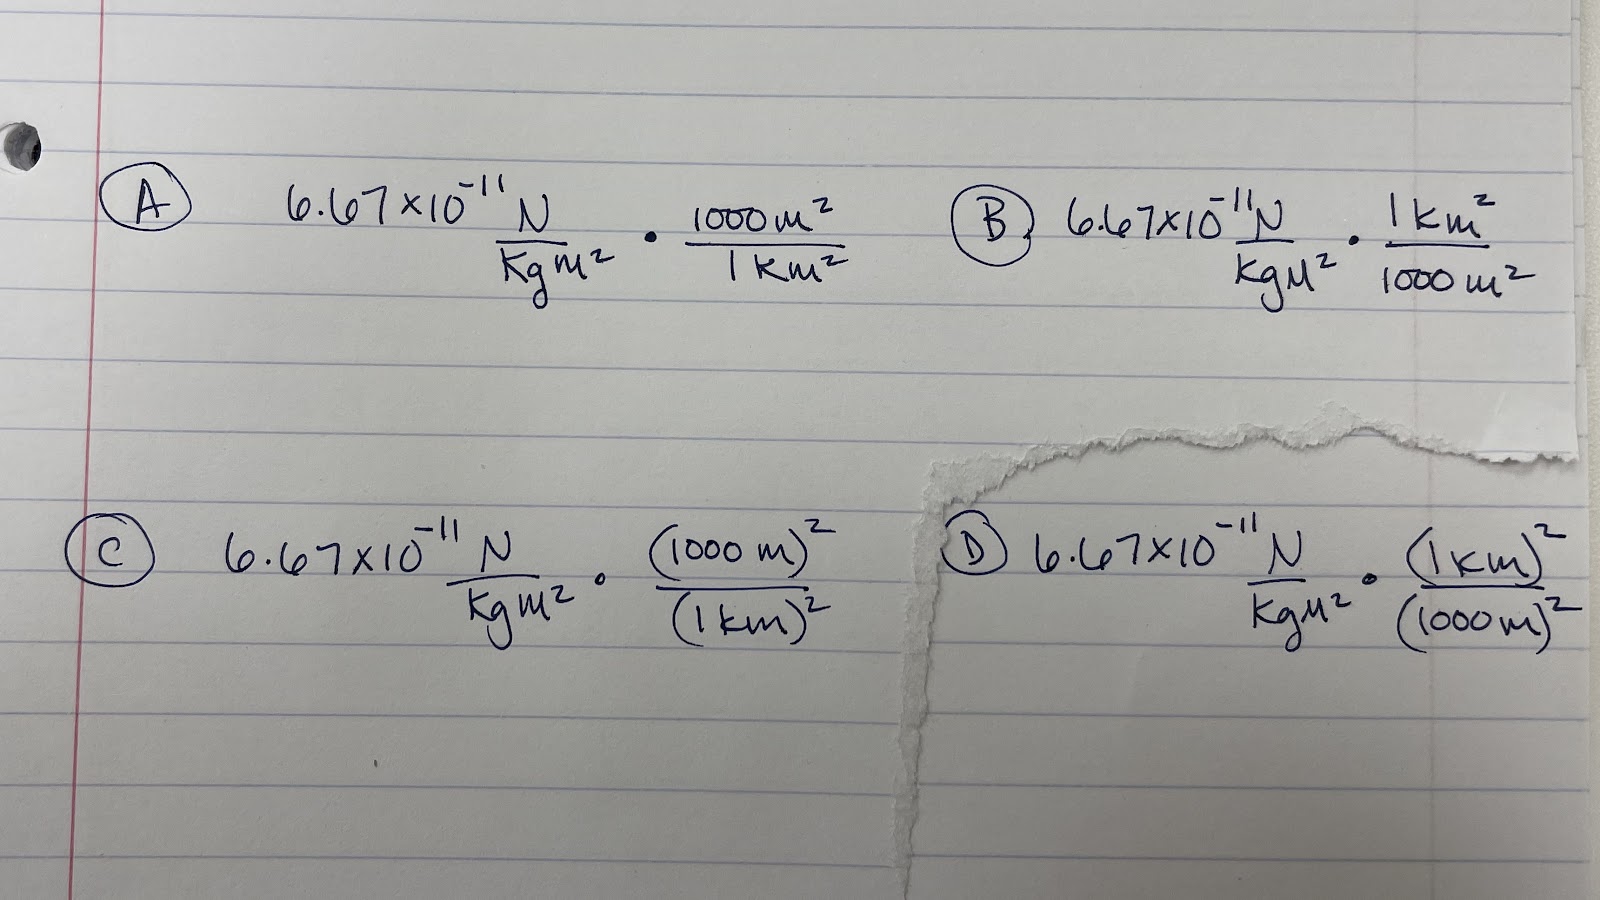 A 6.67×10⁻¹¹ N/kgm² · 1000m²/1km²
B 6.67×10⁻¹¹ N/kgm² · 1km²/1000m²
C 6.67×10⁻¹¹ N/kgm² · (1000m)²/(1km)²
D 6.67×10⁻¹¹ N/kgm² · (1km)²/(1000m)²